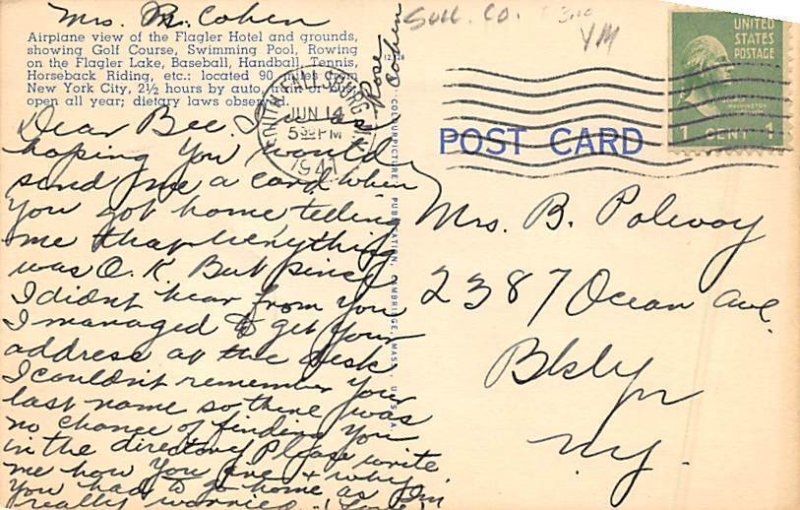 Mrs. M. Cohen
Airplane view of the Flagler Hotel and grounds,
showing Golf Course, Swimming Pool, Rowing
on the Flagler Lake, Baseball, Handball, Tennis,
Horseback Riding, etc.: located 90 miles from
New York City, 2½ hours by auto, train or bus:
open all year; dietary laws observed.
Dear Bee. I was
hoping you would
send me a card when
you got home telling
me that everything
was O.K. But since
I didnt hear from you
I managed to get your
address at the desk
I couldn't remember your
last name so there was
no chance of finding you
in the directory Please write
me how you are & why
you had to go home as I'm
really worried. Love
Rose
Cohen
Sull. Co.
YM
SOUTH FALLSBURG
JUN 14
5 30 PM
1941
COLOURPICTURE PUBLICATION, CAMBRIDGE, MASS. U.S.A.
POST CARD
UNITED
STATES
POSTAGE
WASHINGTON
1 CENT 1
Mrs. B. Polevoy
2387 Ocean Ave.
Bklyn
N.Y.